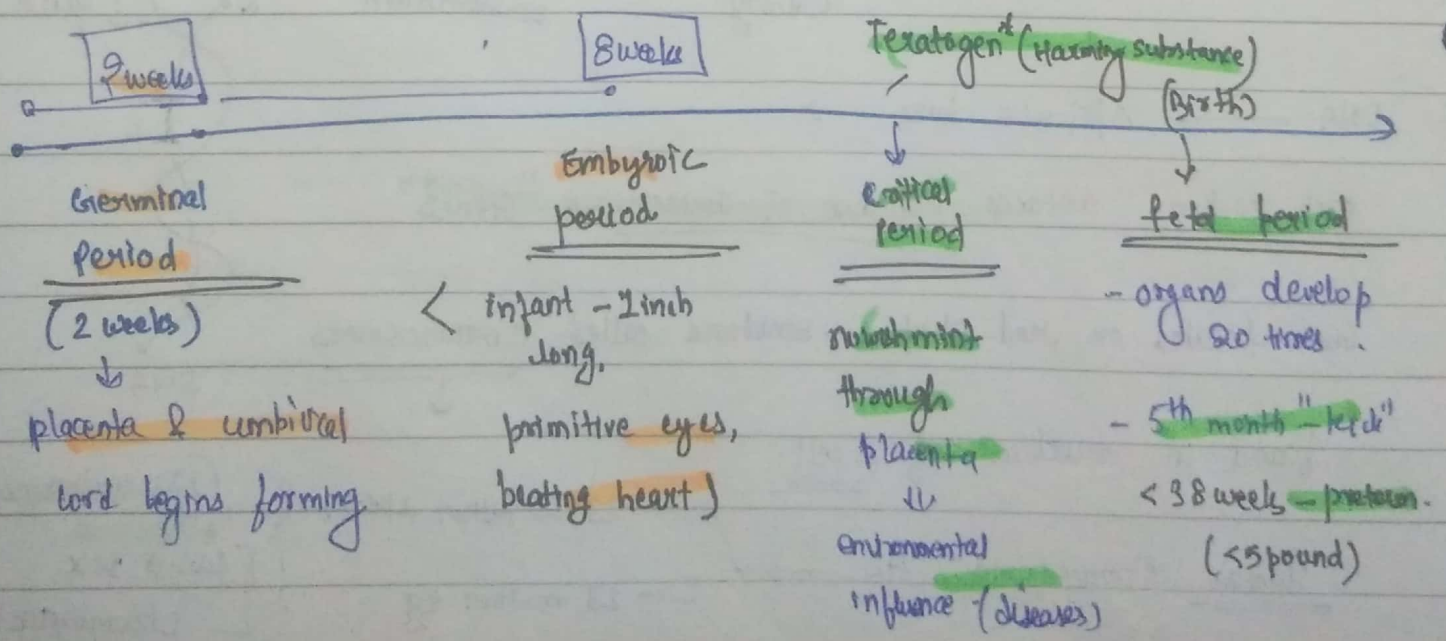 2 weeks
8 weeks
Teratogen* (Harming substance)
(Birth)
Germinal
Period
(2 weeks)
placenta & umbilical
cord begins forming
Embyroic
period
< infant - 1 inch
long.
primitive eyes,
beating heart)
critical
period
through
placenta
environmental
influence - (diseases)
fetal period
- organs develop
20 times.
- 5th month - "kick"
< 38 weeks - preterm.
(<5 pound)